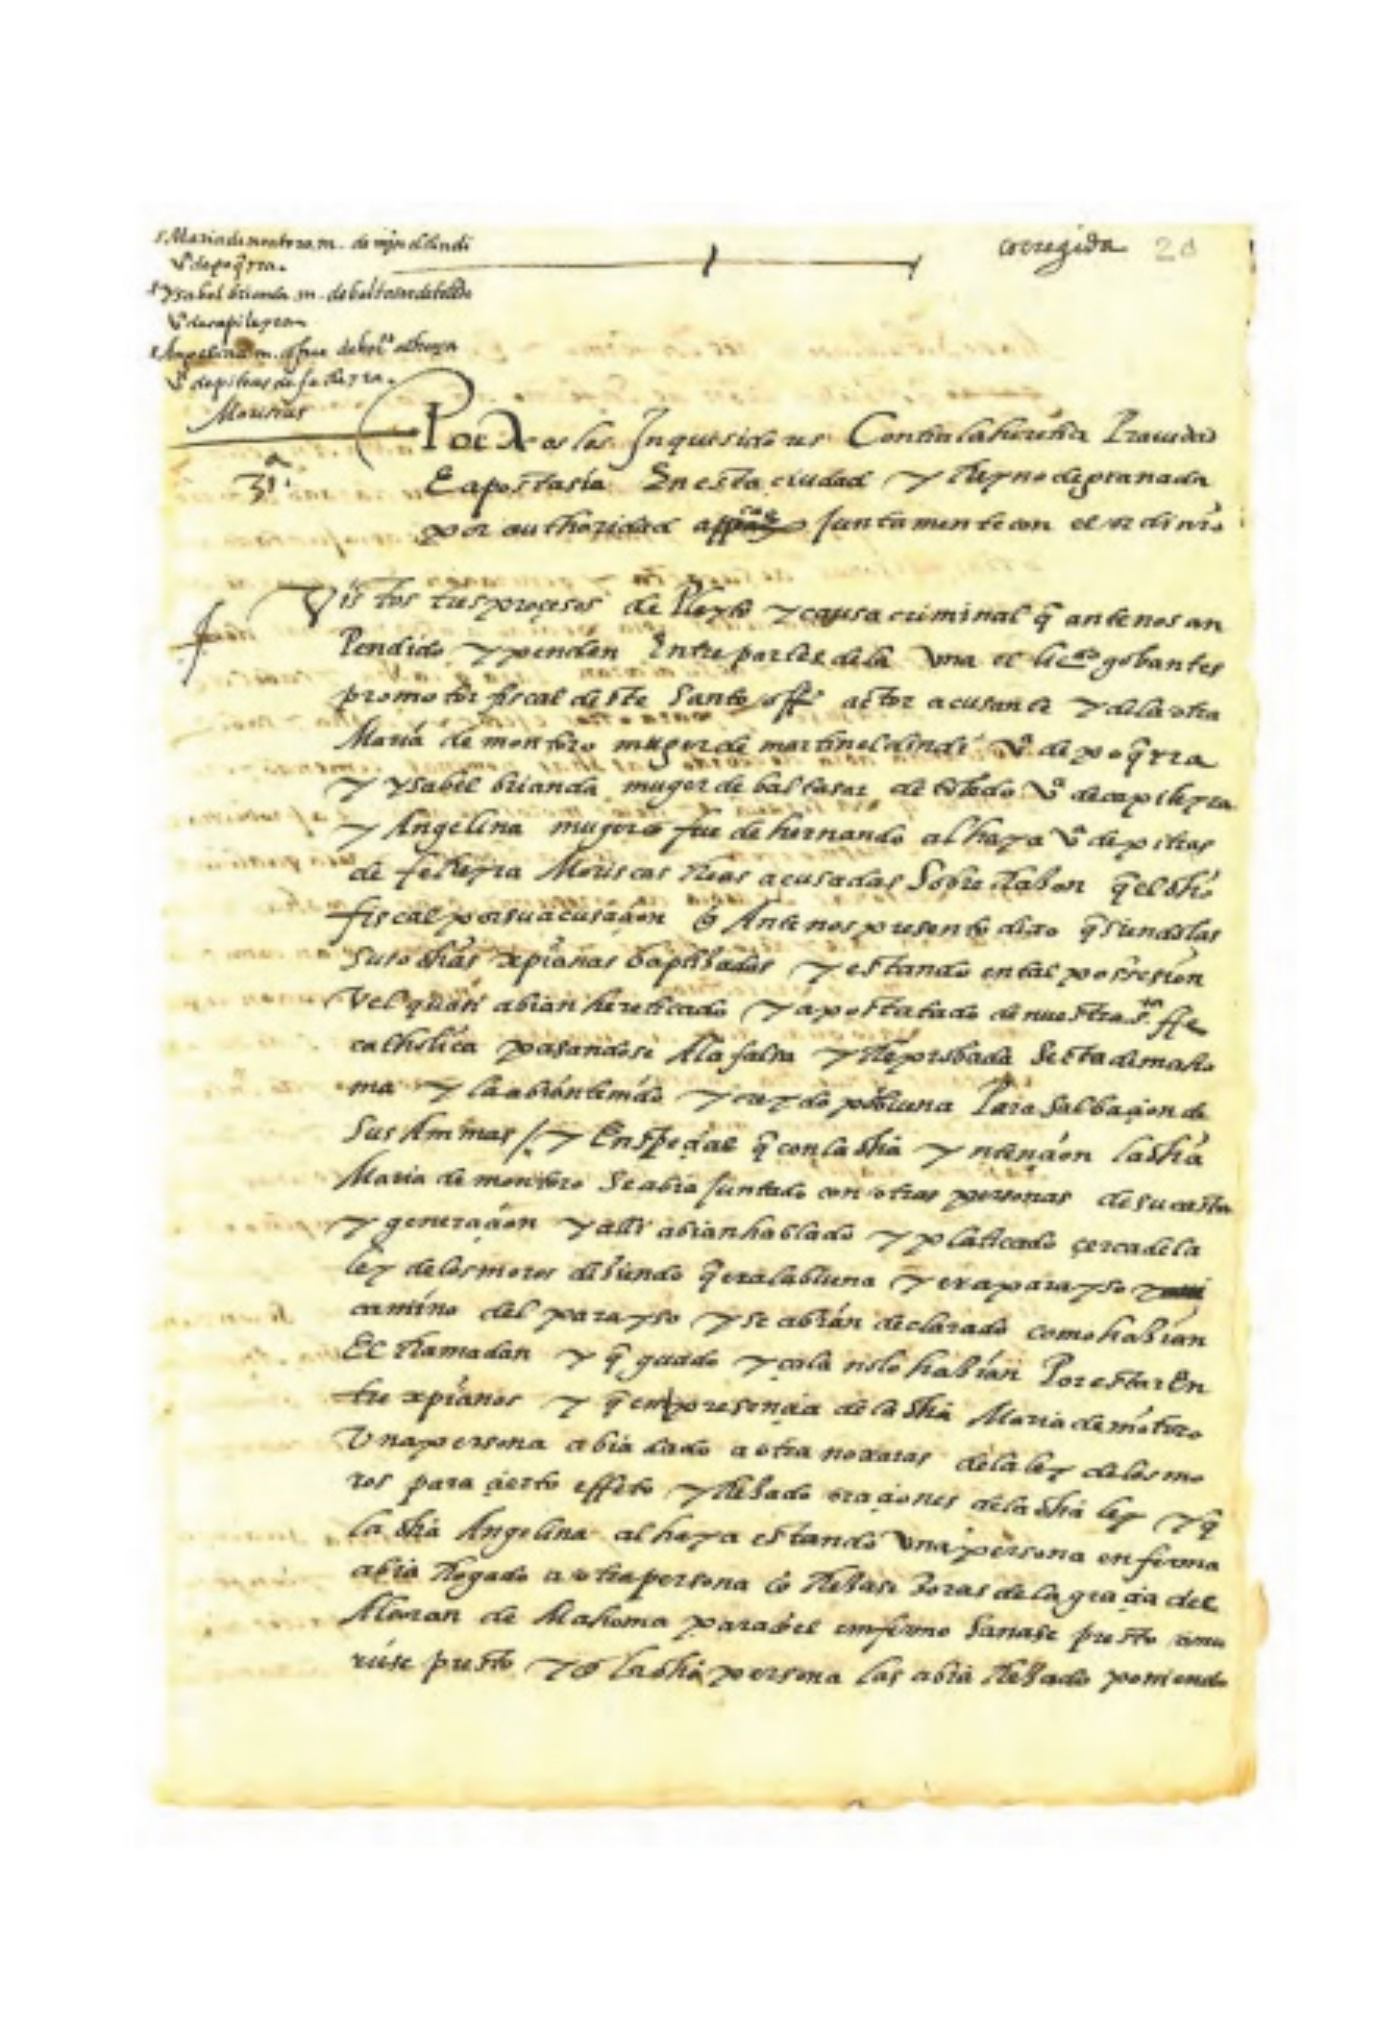 Maria de montoro m. de mjn el dindi
vº de poq̃rra.
Ysabel brianda m. de baltasar de toledo
vº de capileyra
Angelina m. q̃ fue de herdº alhaya
vº de pitras de ferreyra.
Moriscas
corregida 20
3ª.
Por Nos los Inquisidores Contra la heretica Pravedad
E apostasia En esta ciudad y Reyno de granada
por authoridad appca Juntamente con el ordinrio
Vistos tres proçesos de Pleyto y causa criminal q̃ ante nos an
Pendido y penden Entre partes de la una el licdo gobantes
promotor fiscal deste Santo offº actor acusante y de la otra
Maria de montoro muger de martin el dindi vº de poq̃rra
y ysabel brianda muger de baltasar de toledo vº de capileyra
y Angelina muger q̃ fue de hernando alhaya vº de pitras
de ferreyra Moriscas Reas acusadas Sobre Razon q̃ el dho
fiscal por su acusaçion q̃ Ante nos presento dixo q̃ siendo las
suso dhas xpianas baptizadas y estando en tal possesion
vel quasi abian hereticado y apostatado de nuestra sta ffe
catholica pasandose A la falsa y Reprobada Secta de maho
ma y la abian tenido y creydo por buena Para salbaçion de
sus Animas /. y En speçial q̃ con la dha yntençion la dha
Maria de montoro se abia Juntado con otras personas de su casta
y generaçion y alli abian hablado y platicado çerca de la
ley de los moros diziendo q̃ era la buena y era parayso
camino del parayso y se abian declarado como habian
El Ramadan y q̃ guado y çala no lo habian Por estar En
tre xpianos y q̃ en presençia de la dha Maria de mõtoro
una persona abia dado a otra noxaras de la ley de los mo
ros para çierto effeto y Rezado oraçiones de la dha ley y q̃
la dha Angelina alhaya estando una persona enferma
abia Rogado a otra persona q̃ Rezase zoras de la graçia del
Alcoran de Mahoma para q̃ el enfermo sanase presto o mu
riese presto y q̃ la dha persona las abia Rezado poniendo